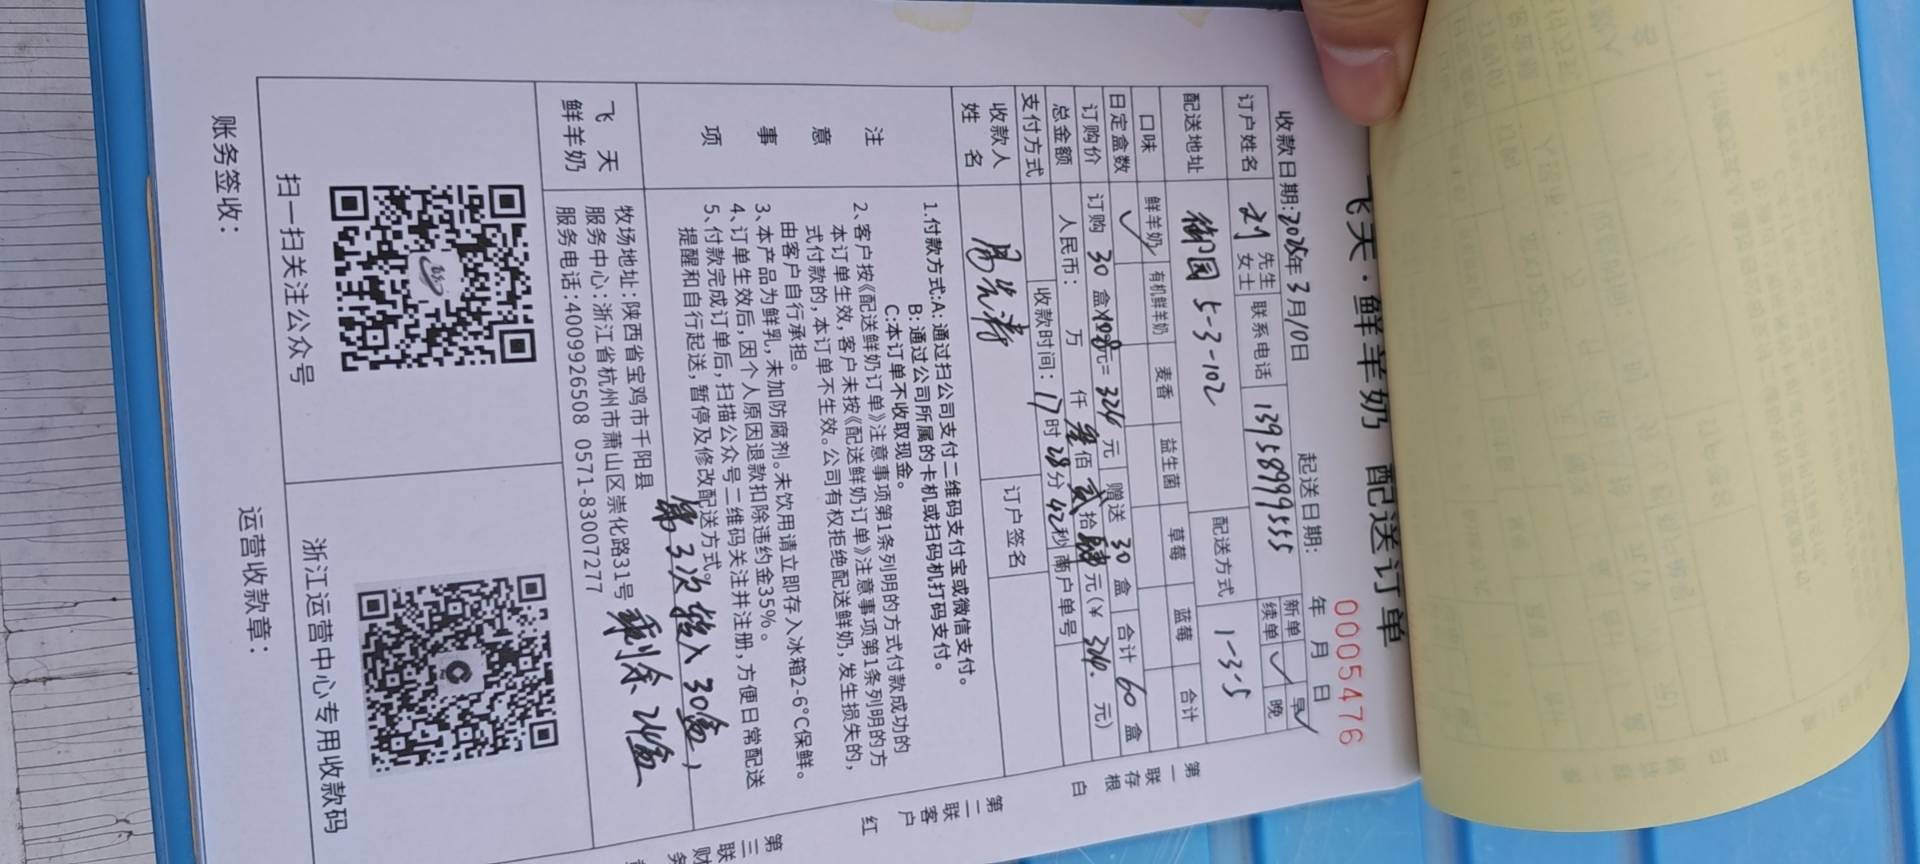 飞天·鲜羊奶 配送订单
0005476
收款日期:2025年3月10日 起送日期: 年 月 日
订户姓名 刘 先生 女士 联系电话 13958999555 新单 续单 ✓ 早✓ 晚
配送地址 御园 5-3-102 配送方式 1-3-5
口味 鲜羊奶 有机鲜羊奶 麦香 益生菌 草莓 蓝莓 合计
日定盒数 ✓
订购价 订购 30 盒×10.8元= 324 元 赠送 30 盒 合计 60 盒
总金额 人民币: 万 仟 叁佰 贰拾 肆元(¥ 324. 元)
支付方式 收款时间: 17时28分42秒 商户单号
收款人姓名 订户签名
注意事项
1.付款方式:A:通过扫公司支付二维码支付宝或微信支付。
B:通过公司所属的卡机或扫码机打码支付。
C:本订单不收取现金。
2、客户按《配送鲜奶订单》注意事项第1条列明的方式付款成功的
本订单生效,客户未按《配送鲜奶订单》注意事项第1条列明的方
式付款的,本订单不生效。公司有权拒绝配送鲜奶,发生损失的,
由客户自行承担。
3、本产品为鲜乳,未加防腐剂。未饮用请立即存入冰箱2-6°C保鲜。
4、订单生效后,因个人原因退款扣除违约金35%。
5、付款完成订单后,扫描公众号二维码关注并注册,方便日常配送
提醒和自行起送,暂停及修改配送方式。
第3次转入30盒,
剩余21盒
飞天鲜羊奶
牧场地址:陕西省宝鸡市千阳县
服务中心:浙江省杭州市萧山区崇化路31号
服务电话:4009926508 0571-83007277
扫一扫关注公众号
浙江运营中心专用收款码
账务签收: 运营收款章:
第一联存根 白
第二联客户 红
第三联财务